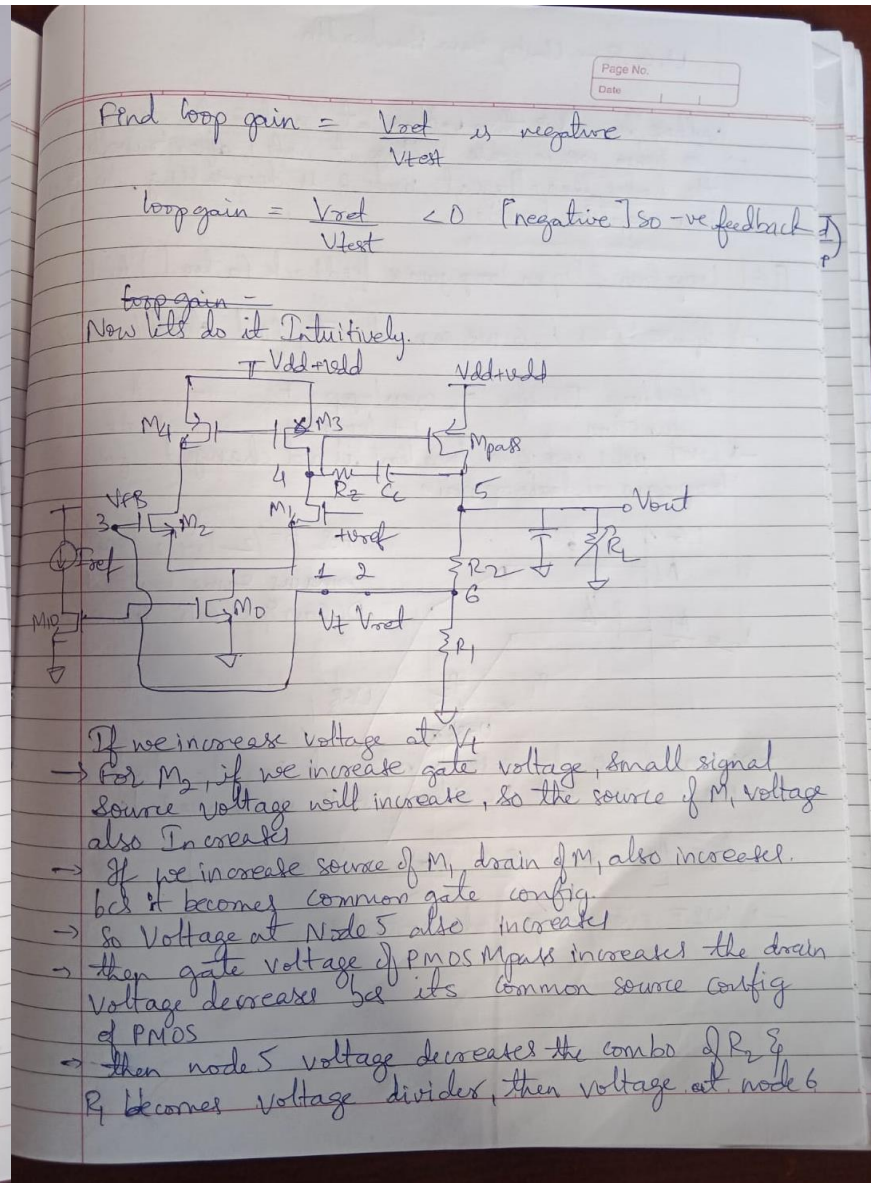 Page No.
Date
Find loop gain = Vret / Vtest is negative
loop gain = Vret / Vtest <0 [negative] so -ve feedback
loop gain =
Now lets do it Intuitively.
Vdd+vdd
Vdd+vdd
M4
M3
Mpass
4
Rz
Cc
5
VFB
M1
Vout
3
M2
+vref
RL
Iref
1 2
R2
6
M10
M0
Vt Vret
R1
If we increase voltage at Vt
→ For M2, if we increase gate voltage, small signal
source voltage will increase, so the source of M1 voltage
also Increases
→ If we increase source of M1, drain of M1 also increases.
bcs it becomes common gate config.
→ So Voltage at Node 5 also increases
→ then gate voltage of PMOS Mpass increases the drain
voltage decreases bcs its common source config
of PMOS
→ then node 5 voltage decreases the combo of R2 &
R1 becomes voltage divider, then voltage at node 6